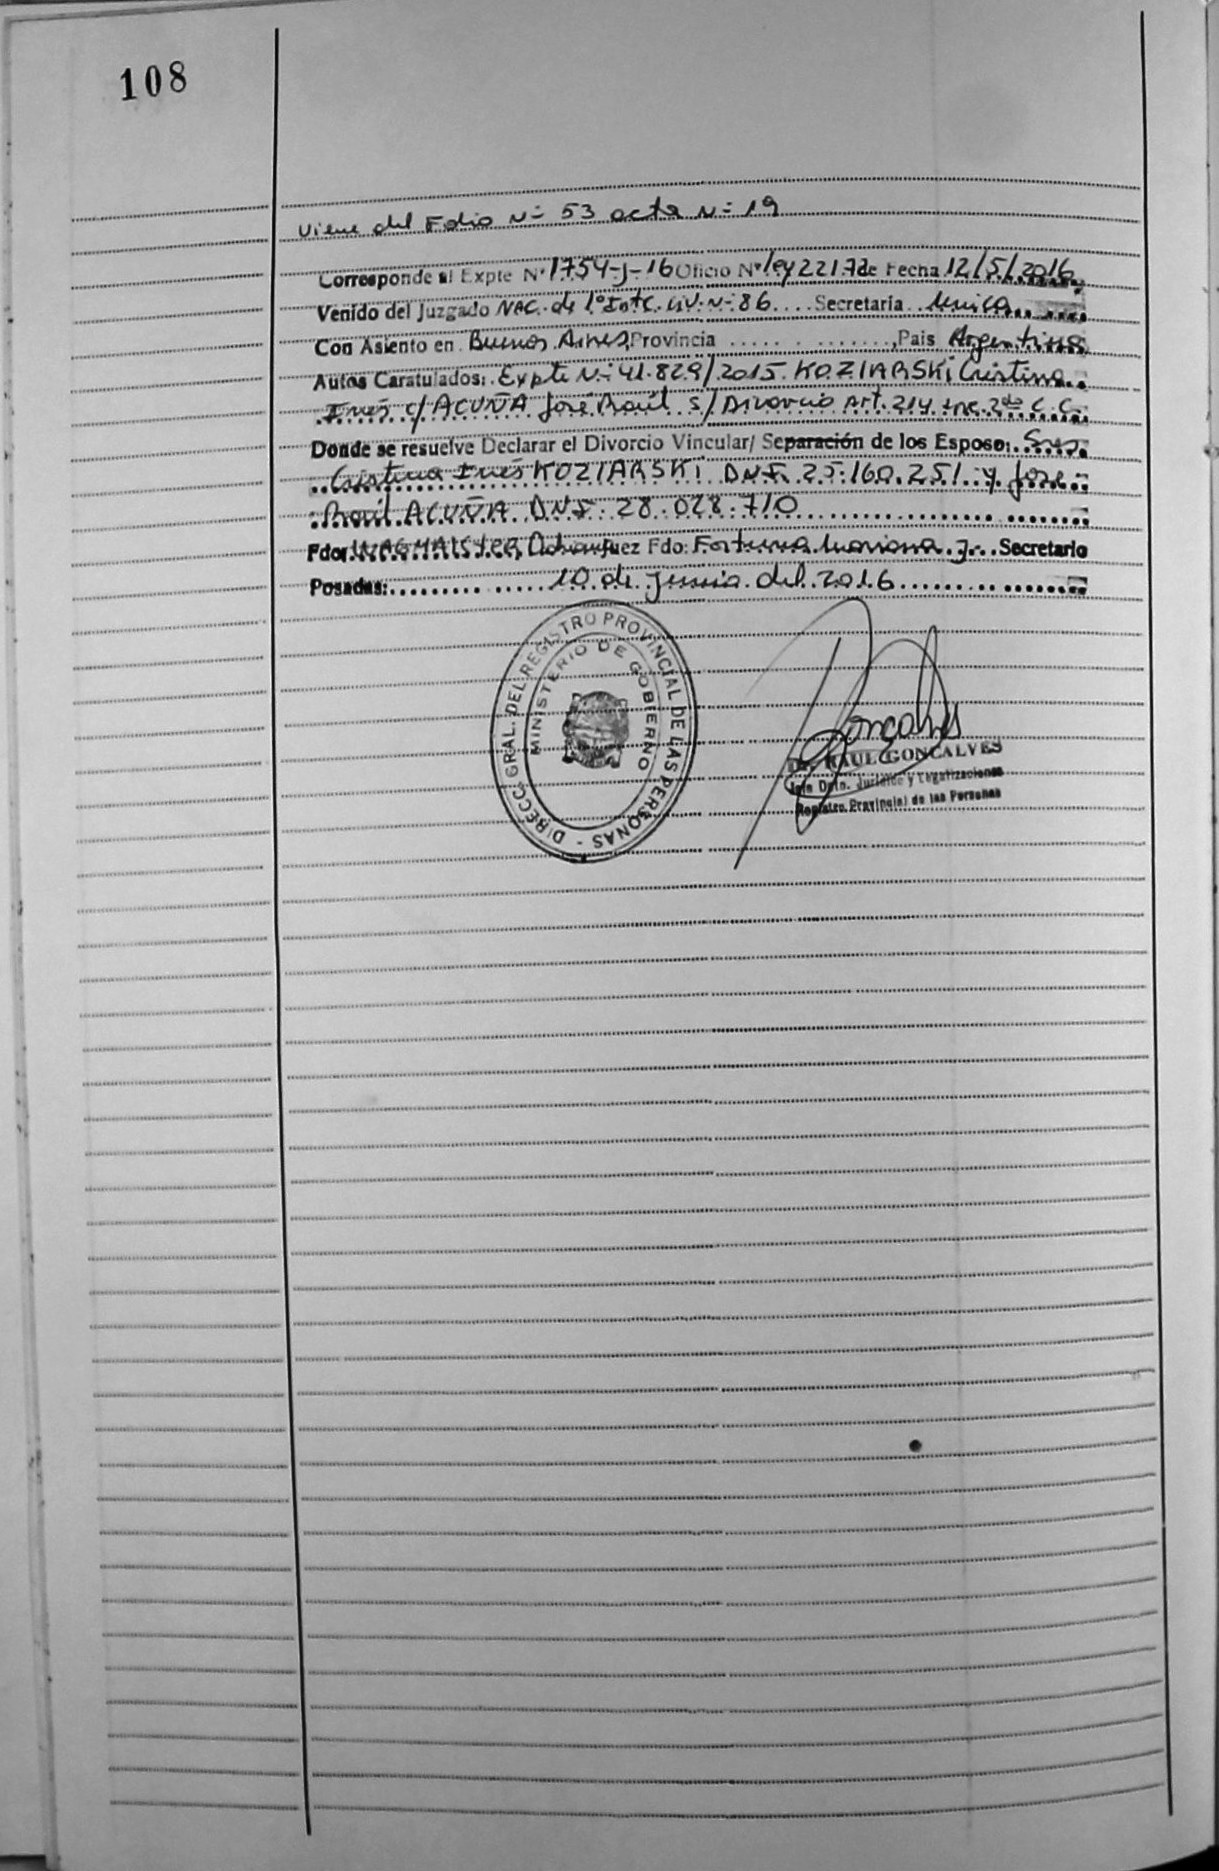 108
Viene del Folio Nº 53 acta Nº 19
Corresponde al Expte Nº 1754-J-16 Oficio Nº ley 22172 de Fecha 12/5/2016
Venido del Juzgado NAC. de 1º Inst. C. Civ. Nº 86 .... Secretaria . Unica
Con Asiento en . Buenos Aires, Provincia ..............., Pais Argentina
Autos Caratulados: Expte Nº 41.829/2015. KOZIARSKI Cristina
Inés c/ ACUÑA José Raúl s/ Divorcio Art. 214 inc. 2do C. C.
Donde se resuelve Declarar el Divorcio Vincular/ Separación de los Esposo: Sres
Cristina Inés KOZIARSKI DNI. 25.160.251 y Jose
Raúl ACUÑA DNI. 28.028.710
Fdo: Juez Fdo: Fortuna Mariana . J. Secretario
Posadas: ............ 10 de Junio del 2016
DIRECC. GRAL. DEL REGISTRO PROVINCIAL DE LAS PERSONAS -
MINISTERIO DE GOBIERNO
Gonçalves
Dr. RAUL GONCALVES
Jefe Dpto. Jurídico y Legalizaciones
Registro Provincial de las Personas